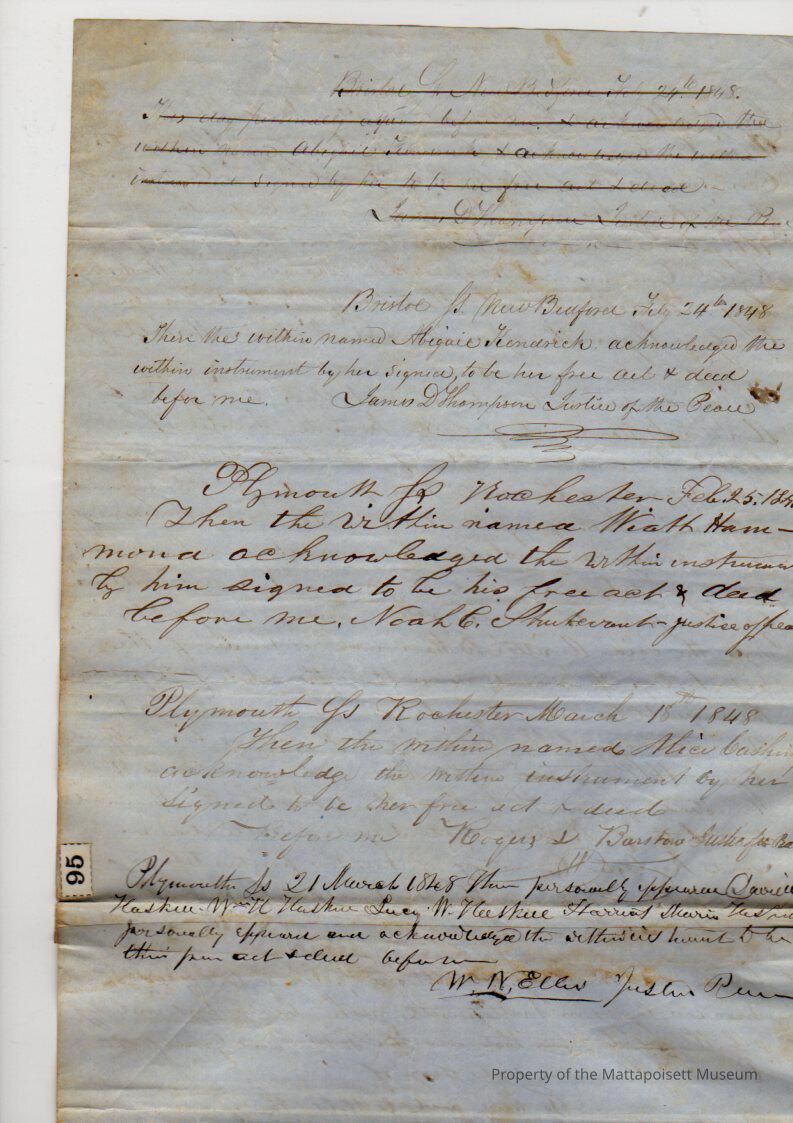 Bristol Ss N. Bedford Feb 24th 1848.
personally before me & acknowledged the
within named Abigail Kendrick & acknowledged the within
instrument signed by her to be her free act & deed
James D Thompson Justice of the Peace
Bristol Ss New Bedford Feb 24th 1848
Then the within named Abigail Kendrick acknowledged the
within instrument by her signed, to be her free act & deed
before me. James D Thompson Justice of the Peace
Plymouth Ss Rochester Feb. 25. 184
Then the within named Wiath Ham-
mond acknowledged the within instrumen
by him signed to be his free act & deed
before me, Noah C. Sturtevant - justice of pea
Plymouth Ss Rochester March 18th 1848
Then the within named Alice Cushin
acknowledge the within instrument by her
signed to be her free act & deed
Before me Rogers L Barstow Justice
95
Plymouth Ss 21 March 1848 then personally appeared
Haskell Wm H Haskell Lucy W. Haskell Harriot Maria
personally appeared and acknowledged the within to be
their free act & deed before me
W. N. Ellis Justice
Property of the Mattapoisett Museum